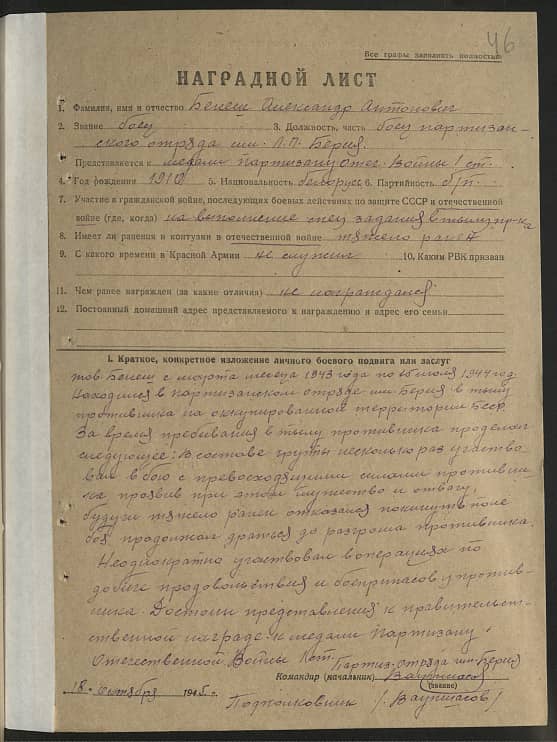 46
Все графы заполнять полностью
НАГРАДНОЙ ЛИСТ
1. Фамилия, имя и отчество Бенеш Александр Антонович
2. Звание боец 3. Должность, часть боец партизан-
ского отряда им. Л.П. Берия.
Представляется к медали Партизану Отеч. Войны I ст.
4. Год рождения 1910 5. Национальность белорус 6. Партийность б/п.
7. Участие в гражданской войне, последующих боевых действиях по защите СССР и отечественной
войне (где, когда) на выполнение спец задания в тылу пр-ка
8. Имеет ли ранения и контузии в отечественной войне тяжело ранен
9. С какого времени в Красной Армии не служил 10. Каким РВК призван
11. Чем ранее награжден (за какие отличия) не награждался
12. Постоянный домашний адрес представляемого к награждению и адрес его семьи
I. Краткое, конкретное изложение личного боевого подвига или заслуг
тов. Бенеш с марта месяца 1943 года по 15 июля 1944 год.
Находился в партизанском отряде им. Берия в тылу
противника на оккупированной территории БССР.
За время пребывания в тылу противника проделал
следующее: В составе группы несколько раз участво-
вал в бою с превосходящими силами противни-
ка проявив при этом мужество и отвагу,
будучи тяжело ранен отказался покинуть поле
боя продолжал драться до разгрома противника.
Неоднократно участвовал в операциях по
добыче продовольствия и боеприпасов у против-
ника. Достоин представления к правительст-
ственной награде к медали Партизану
Отечественной Войны I ст.
Партиз. отряда им. Берия
Командир (начальник) Ваупшасов
(звание)
18 октября 1945 г.
Подполковник (Ваупшасов)